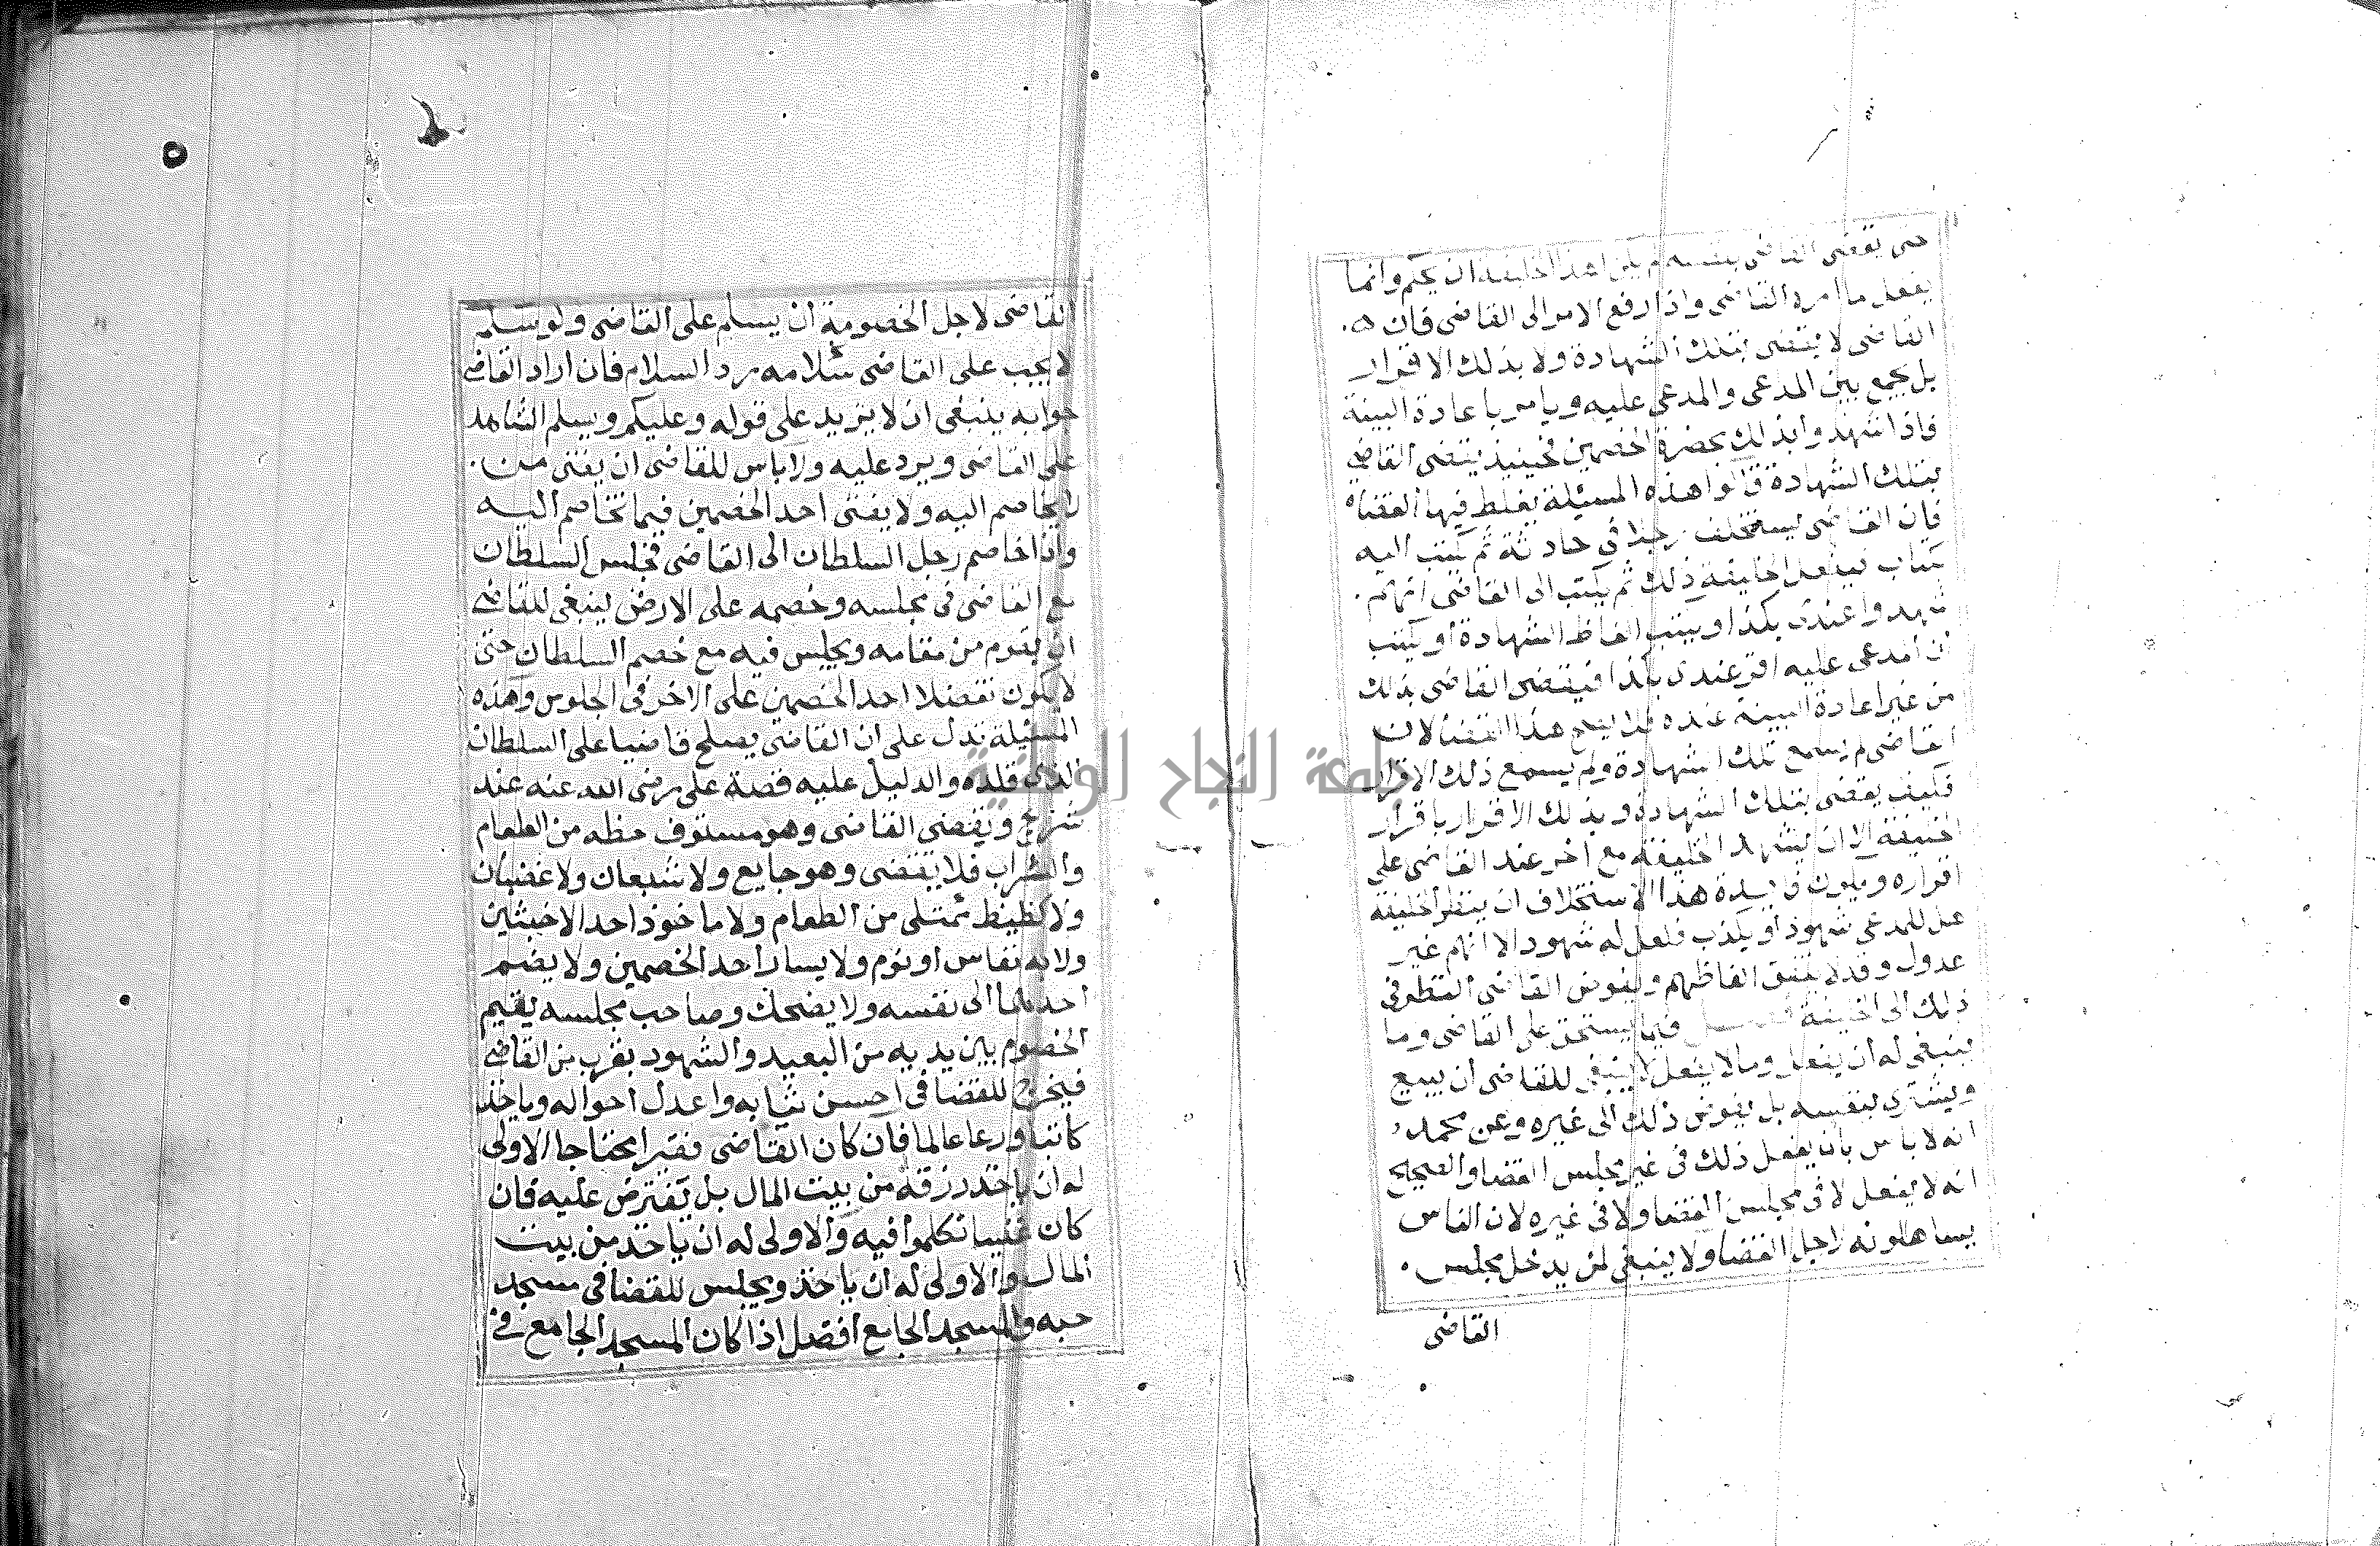 حتى يقضى القاضى بنفسه لم يكن لهذا الخليفة ان يحكم وانما
يفعل ما امره القاضى واذا رفع الامر الى القاضى فان
القاضى لا يقضى بتلك الشهادة ولا بذلك الاقرار
بل يجمع بين المدعى والمدعى عليه ويامر باعادة البينة
فاذا شهدوا بذلك بحضرة الخصمين فحينيذ يقضى القاضى
بتلك الشهادة قالوا هذه المسئلة يغلط فيها القضاه
فان القاضى يستخلف رجلا فى حادثة ثم يكتب اليه
كتاب فيفعل الخليفة ذلك ثم يكتب الى القاضى انهم
شهدوا عندى بكذا ويكتب الفاظ الشهادة او يكتب
ان المدعى عليه اقر عندى بكذا فيقضى القاضى بذلك
من غير اعادة البينة عنده فلا يصح هذا القضا لان
القاضى لم يسمع تلك الشهادة ولم يسمع ذلك الاقرار
فكيف يقضى بتلك الشهادة وبذلك الاقرار باقرار
الخليفة الا ان يشهد الخليفة مع اخر عند القاضى على
اقراره ويكون فايدة هذا الاستخلاف ان ينظر الخليفة
هل للمدعى شهود او يكذب فلعل له شهود الا انهم غير
عدول وقد لا يتفق الفاظهم ويفوض القاضى النظر فى
ذلك الى الخليفة فصل فيما يستحق على القاضى وما
ينبغى له ان يفعل وما لا يفعل لا ينبغى للقاضى ان يبيع
ويشترى بنفسه بل يفوض ذلك الى غيره وعن محمد
انه لا باس بان يفعل ذلك فى غير مجلس القضا والصحيح
انه لا يفعل لا فى مجلس القضا ولا فى غيره لان الناس
يساهلونه لاجل القضا ولا ينبغى لمن يدخل مجلس
القاضى
القاضى لاجل الخصومة ان يسلم على القاضى ولو سلم
لا يجب على القاضى سلامه رد السلام فان اراد القاضى
جوابه ينبغى ان لا يزيد على قوله وعليكم ويسلم الشاهد
على القاضى ويرد عليه ولا باس للقاضى ان يفتى من
لا يخاصم اليه ولا يفتى احد الخصمين فيما تخاصم اليه
واذا خاصم رجل السلطان الى القاضى فجلس السلطان
مع القاضى فى مجلسه وخصمه على الارض ينبغى للقاضى
ان يقوم من مقامه ويجلس فيه مع خصم السلطان حتى
لا يكون تفضلا احد الخصمين على الاخر فى الجلوس وهذه
المسئلة تدل على ان القاضى يصلح قاضيا على السلطان
الذى قلده والدليل عليه قصة على رضى الله عنه عند
شريح ويقضى القاضى وهو مستوف حظه من الطعام
والشراب فلا يقضى وهو جايع ولا شبعان ولا غضبان
ولا كظيظ ممتلى من الطعام ولا ماخوذ احد الاخبثين
ولا به نعاس او نوم ولا يسار احد الخصمين ولا يضم
احدهما الى نفسه ولا يضحك وصاحب مجلسه يقيم
الخصوم بين يديه من البعيد والشهود بقرب من القاضى
فيخرج للقضا فى احسن ثيابه واعدل احواله وياخذ
كاتبا ورعا عالما فان كان القاضى فقيرا محتاجا الاولى
له ان ياخذ رزقه من بيت المال بل يفترض عليه فان
كان غنيا تكلموا فيه والاولى له ان ياخذ من بيت
المال والاولى له ان ياخذ ويجلس للقضا فى مسجد
حيه والمسجد الجامع افضل اذا كان المسجد الجامع فى
٥
جامعة النجاح الوطنية